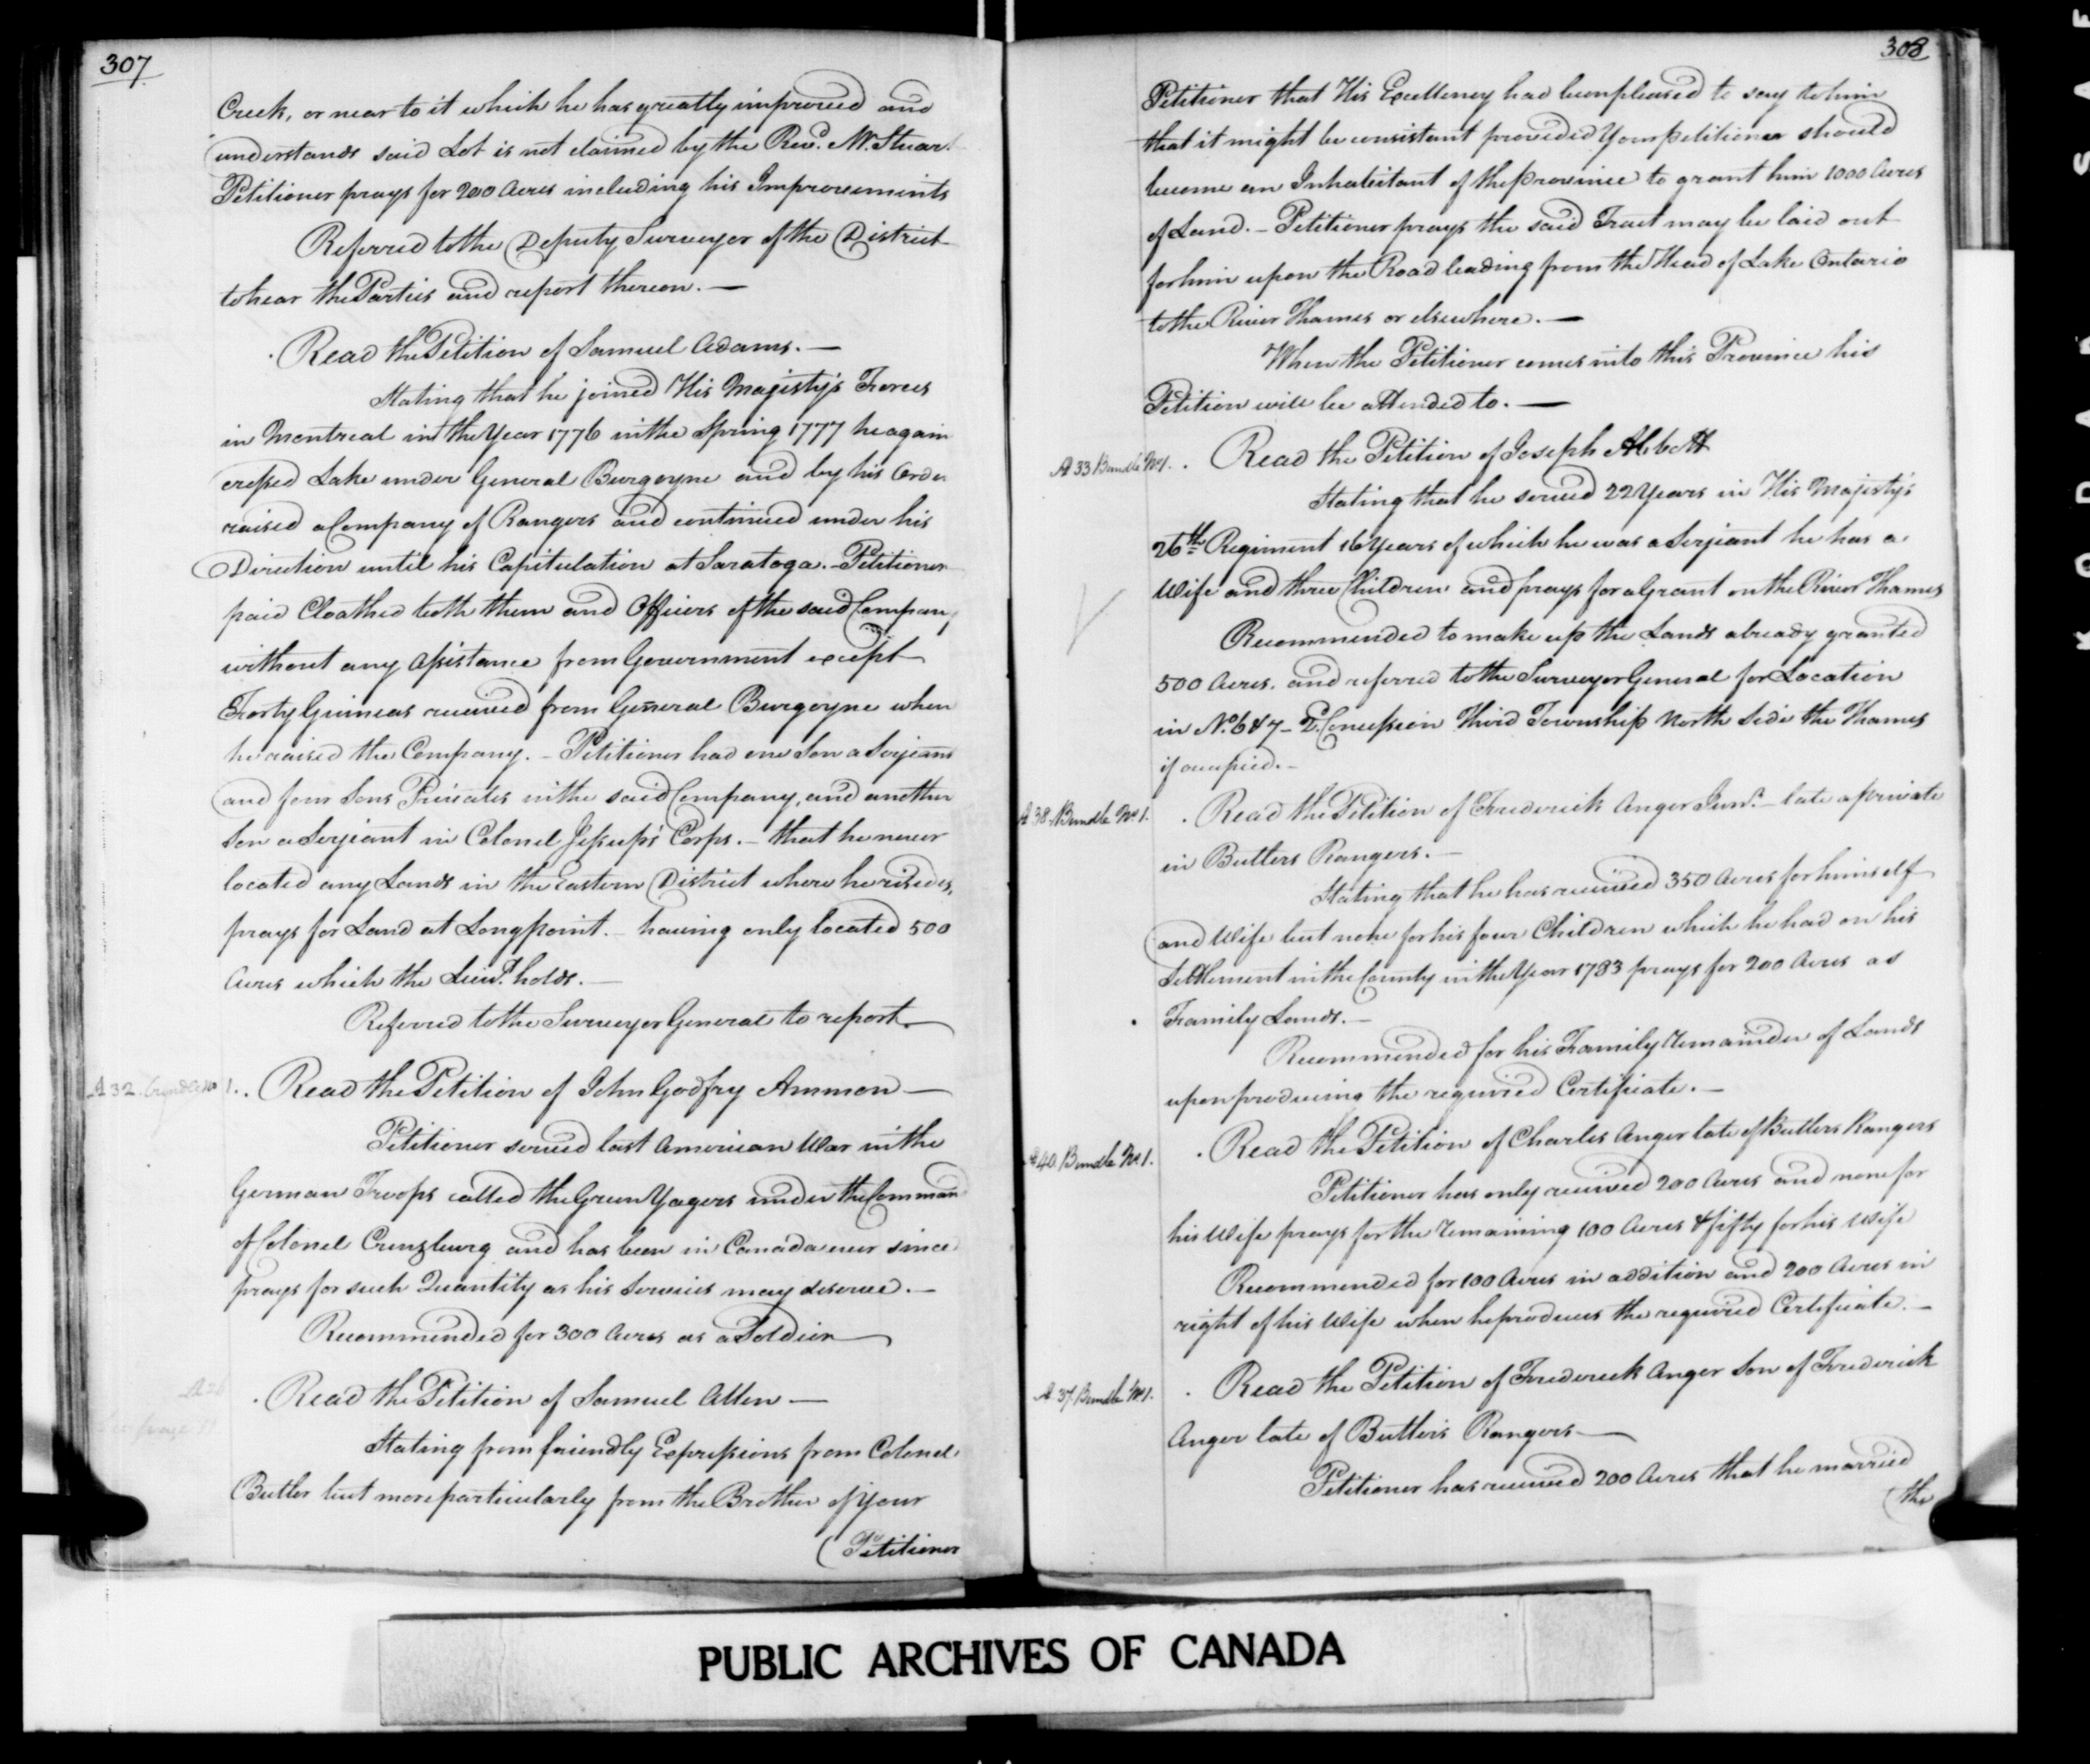 307
Creek, or near to it which he has greatly improved and
understands said Lot is not claimed by the Revd. Mr. Stuart
Petitioner prays for 200 Acres including his Improvements
Referred to the Deputy Surveyor of the District
to hear the Parties and report thereon. —
Read the Petition of Samuel Adams. —
Stating that he joined His Majesty's Forces
in Montreal in the Year 1776 in the Spring 1777 he again
crossed Lake under General Burgoyne and by his Order
raised a Company of Rangers and continued under his
Direction until his Capitulation at Saratoga. - Petitioner
paid Cloathed both them and Officers of the said Company
without any Assistance from Government except
Forty Guineas received from General Burgoyne when
he raised the Company. - Petitioner had one Son a Serjeant
and four Sons Privates in the said Company, and another
Son a Serjeant in Colonel Jessup's Corps. - that he never
located any Lands in the Eastern District where he resides,
prays for Land at Longpoint. - having only located 500
Acres which the holds. —
Referred to the Surveyor General to report —
A 32. Bundle No 1. . Read the Petition of John Godfry Ammon —
Petitioner served last American War in the
German Troops called the Green Yagers under the Command
of Colonel Cruzburg and has been in Canada ever since
prays for such Quantity as his Services may deserve. —
Recommended for 300 Acres as a Soldier —
Read the Petition of Samuel Allen —
Stating from friendly Expressions from Colonel
Butler but more particularly from the Brother of Your
(Petitioner
308
Petitioner that His Excellency had been pleased to say to him
that it might be consistant provided Your petitioner should
become an Inhabitant of the province to grant him 1000 Acres
of Land. - Petitioner prays the said Tract may be laid out
for him upon the Road leading from the Head of Lake Ontario
to the River Thames or elsewhere. —
When the Petitioner comes into this Province his
Petition will be attended to. —
A 33 Bundle No 1. . Read the Petition of Joseph Abbott
Stating that he served 22 Years in His Majesty's
26th Regiment 16 Years of which he was a Serjeant he has a
Wife and three Children and prays for a Grant on the River Thames
Recommended to make up the Lands already granted
500 Acres. and referred to the Surveyor General for Location
in No. 6 & 7 - 2d. Concession Third Township North Side the Thames
if occupied. -
A 38. Bundle No 1. . Read the Petition of Frederick Anger Junr. - late a private
in Butlers Rangers. —
Stating that he has received 350 Acres for himself
and Wife but none for his four Children which he had on his
Settlement in the County in the Year 1783 prays for 200 Acres as
Family Lands. —
Recommended for his Family remainder of Lands
upon producing the required Certificate. —
A 40 Bundle No 1. . Read the Petition of Charles Anger late of Butlers Rangers
Petitioner has only received 200 Acres and none for
his Wife prays for the remaining 100 Acres & fifty for his Wife
Recommended for 100 Acres in addition and 200 Acres in
right of his Wife when he produces the required Certificate. —
A 37. Bundle No 1. . Read the Petition of Frederick Anger Son of Frederick
Anger late of Butler's Rangers —
Petitioner has received 200 Acres that he married
(the
PUBLIC ARCHIVES OF CANADA